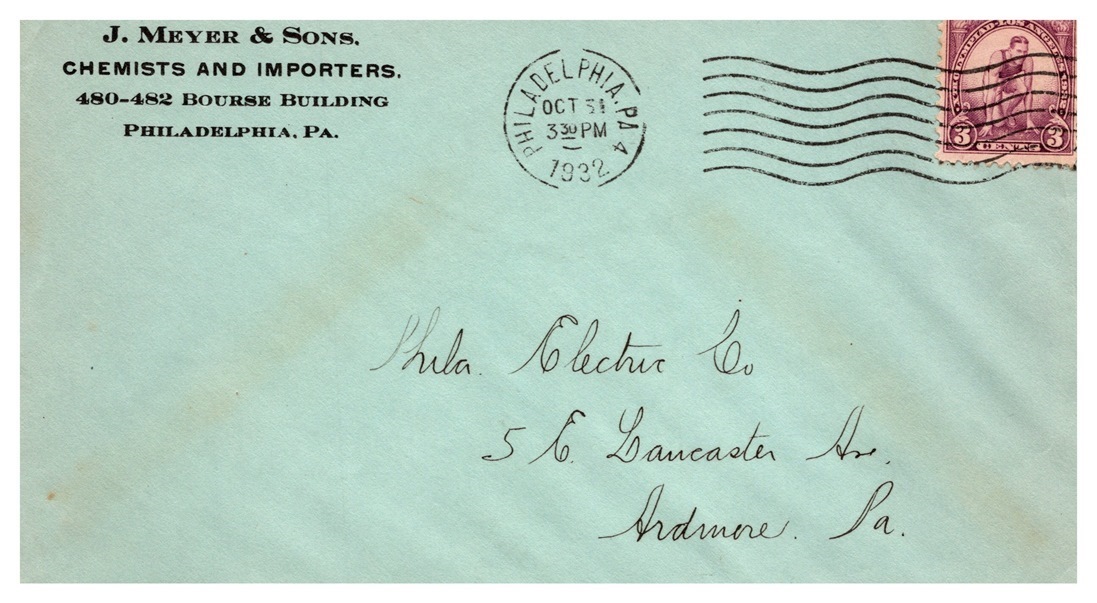 J. MEYER & SONS.
CHEMISTS AND IMPORTERS.
480-482 BOURSE BUILDING
PHILADELPHIA, PA.
PHILADELPHIA, PA 4
OCT 31
3 30 PM
1932
3 3
CENTS
Phila. Electric Co
5 E. Lancaster Ave.
Ardmore. Pa.